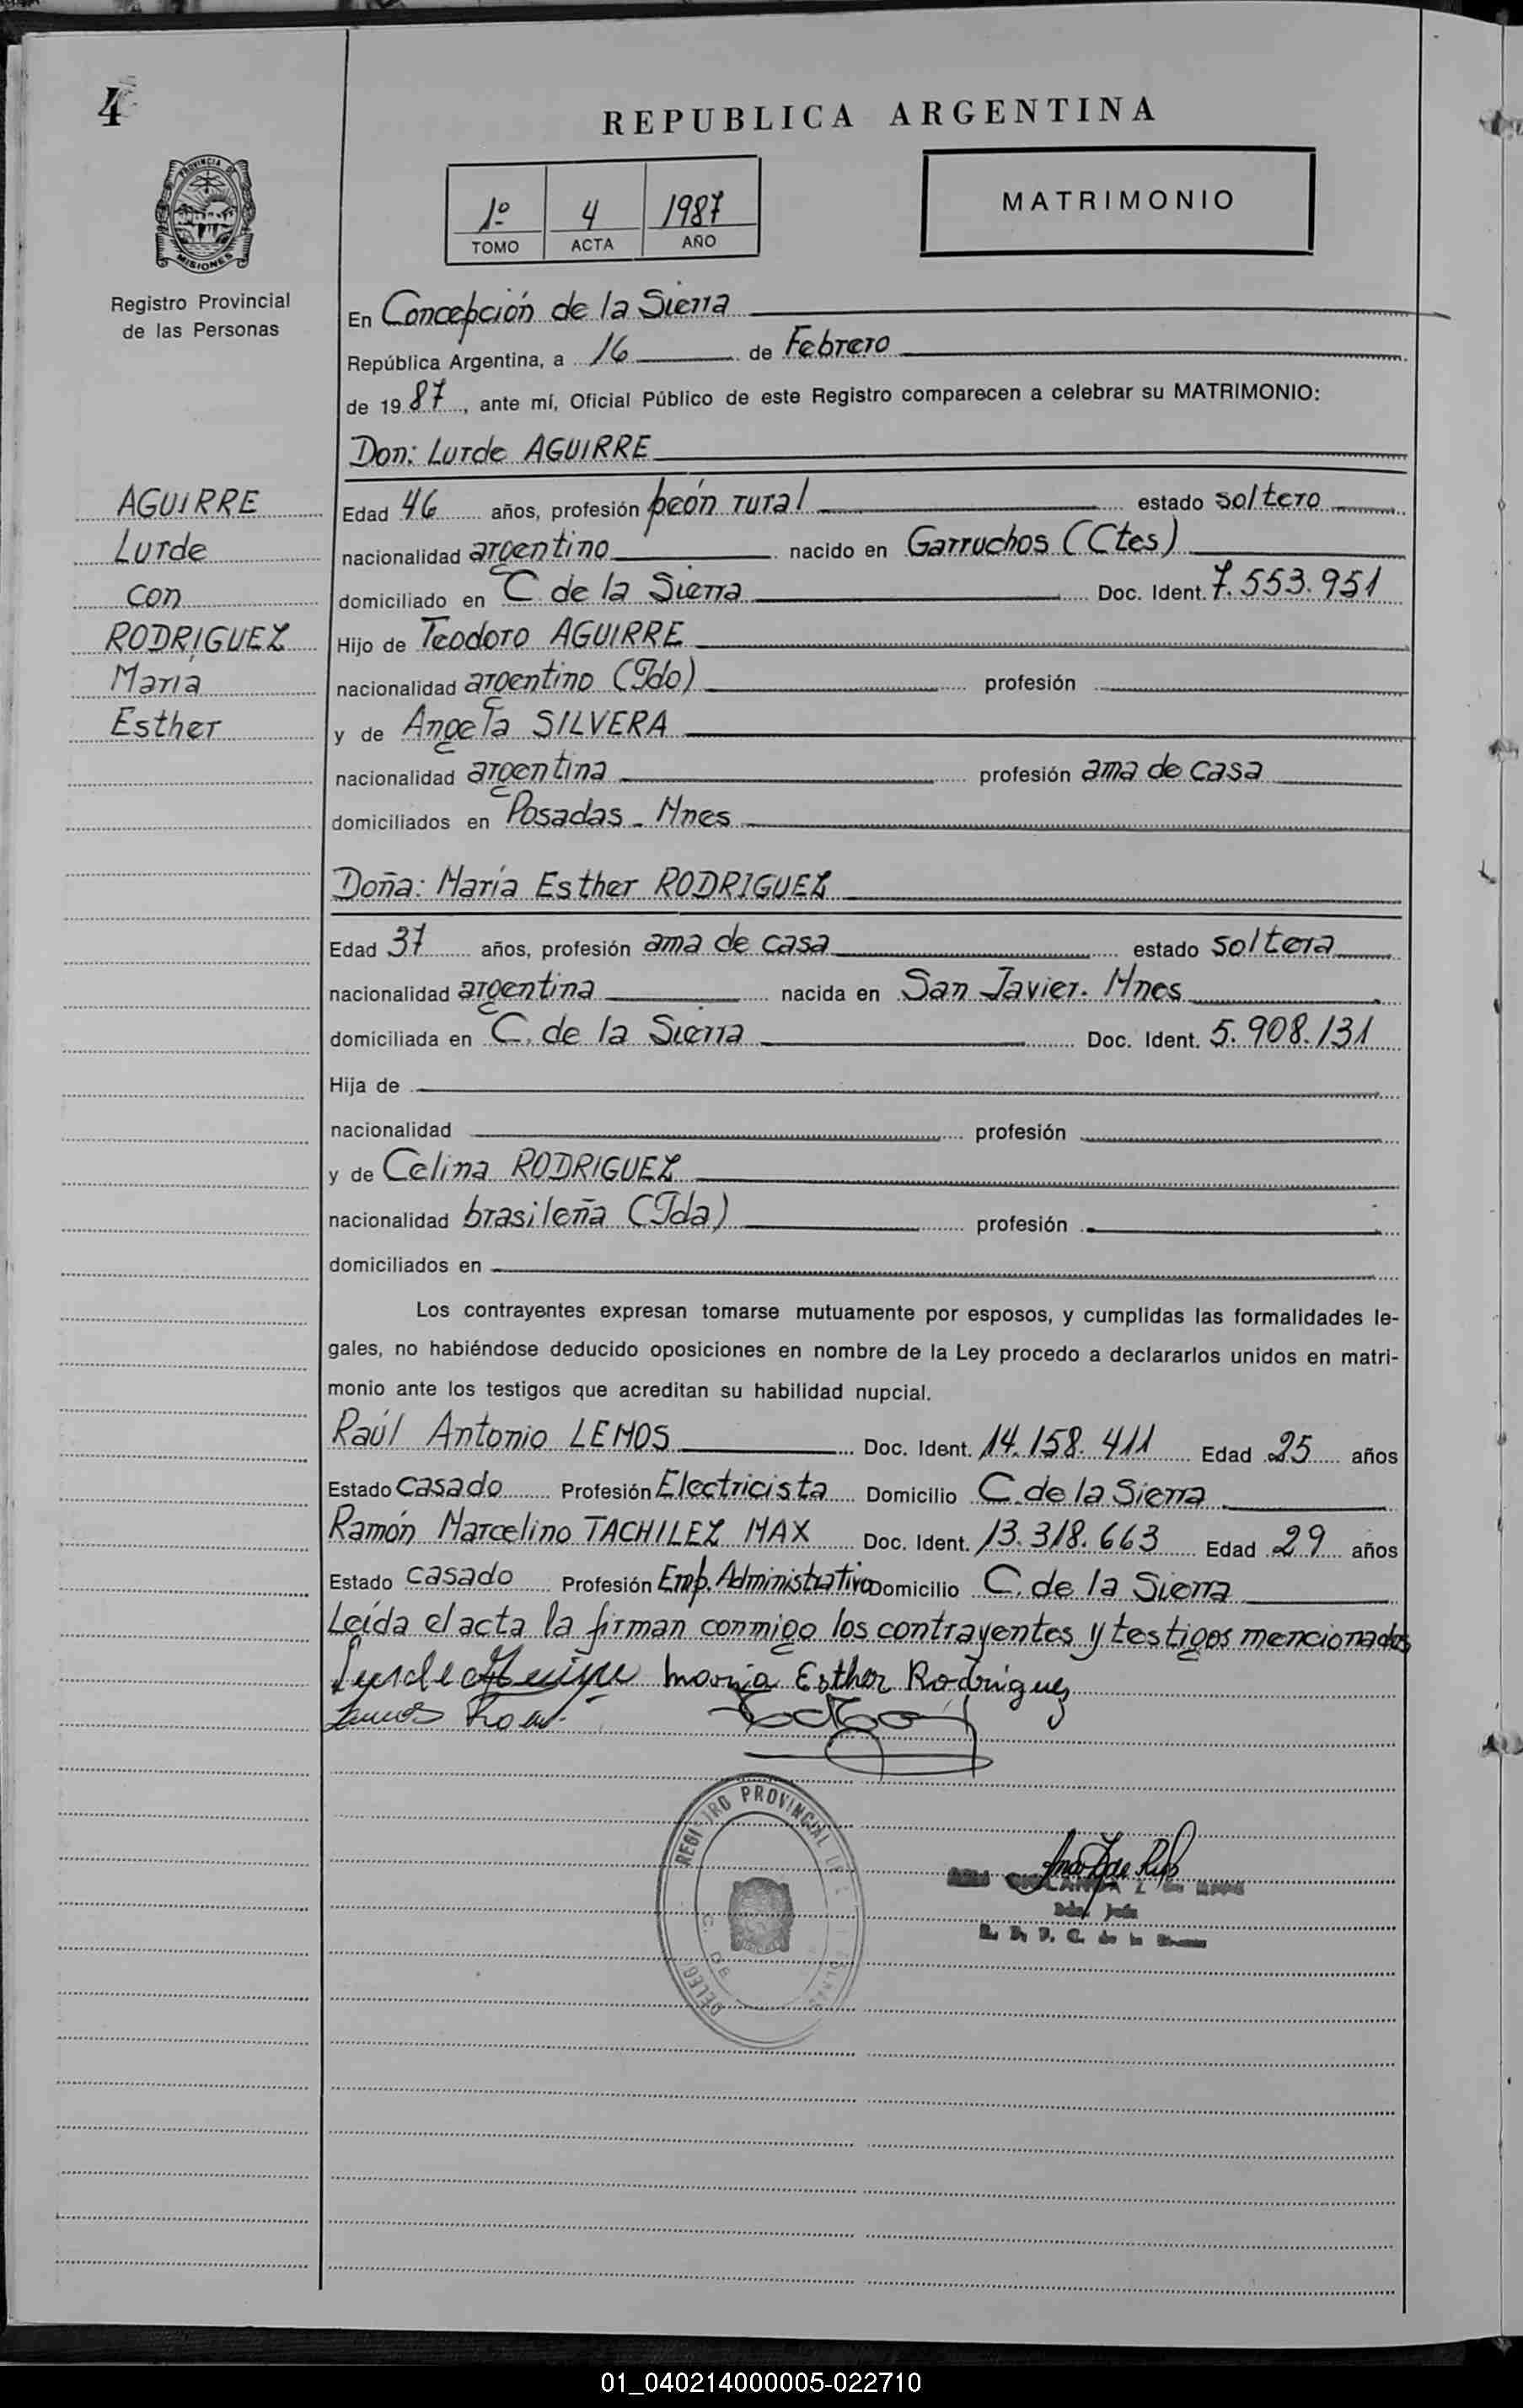 4
REPUBLICA ARGENTINA
PROVINCIA DE
MISIONES
1º 4 1987
TOMO ACTA AÑO
MATRIMONIO
Registro Provincial
de las Personas
En Concepción de la Sierra
República Argentina, a 16 de Febrero
de 1987, ante mí, Oficial Público de este Registro comparecen a celebrar su MATRIMONIO:
Don: Lurde AGUIRRE
AGUIRRE
Lurde
con
RODRIGUEZ
Maria
Esther
Edad 46 años, profesión peón rural estado soltero
nacionalidad argentino nacido en Garruchos (Ctes)
domiciliado en C de la Sierra Doc. Ident. 7.553.951
Hijo de Teodoro AGUIRRE
nacionalidad argentino (Fdo) profesión
y de Angela SILVERA
nacionalidad argentina profesión ama de casa
domiciliados en Posadas - Mnes
Doña: María Esther RODRIGUEZ
Edad 37 años, profesión ama de casa estado soltera
nacionalidad argentina nacida en San Javier. Mnes
domiciliada en C. de la Sierra Doc. Ident. 5.908.131
Hija de
nacionalidad profesión
y de Celina RODRIGUEZ
nacionalidad brasileña (Fda) profesión
domiciliados en
Los contrayentes expresan tomarse mutuamente por esposos, y cumplidas las formalidades le-
gales, no habiéndose deducido oposiciones en nombre de la Ley procedo a declararlos unidos en matri-
monio ante los testigos que acreditan su habilidad nupcial.
Raúl Antonio LEMOS Doc. Ident. 14.158.411 Edad 25 años
Estado casado Profesión Electricista Domicilio C. de la Sierra
Ramón Marcelino TACHILEZ MAX Doc. Ident. 13.318.663 Edad 29 años
Estado casado Profesión Emp. Administrativo Domicilio C. de la Sierra
Leída el acta la firman conmigo los contrayentes y testigos mencionados
Lurde Aguirre Maria Esther Rodriguez
Lemos Raul
REGISTRO PROVINCIAL DE
DELEG C. DE
01_040214000005-022710